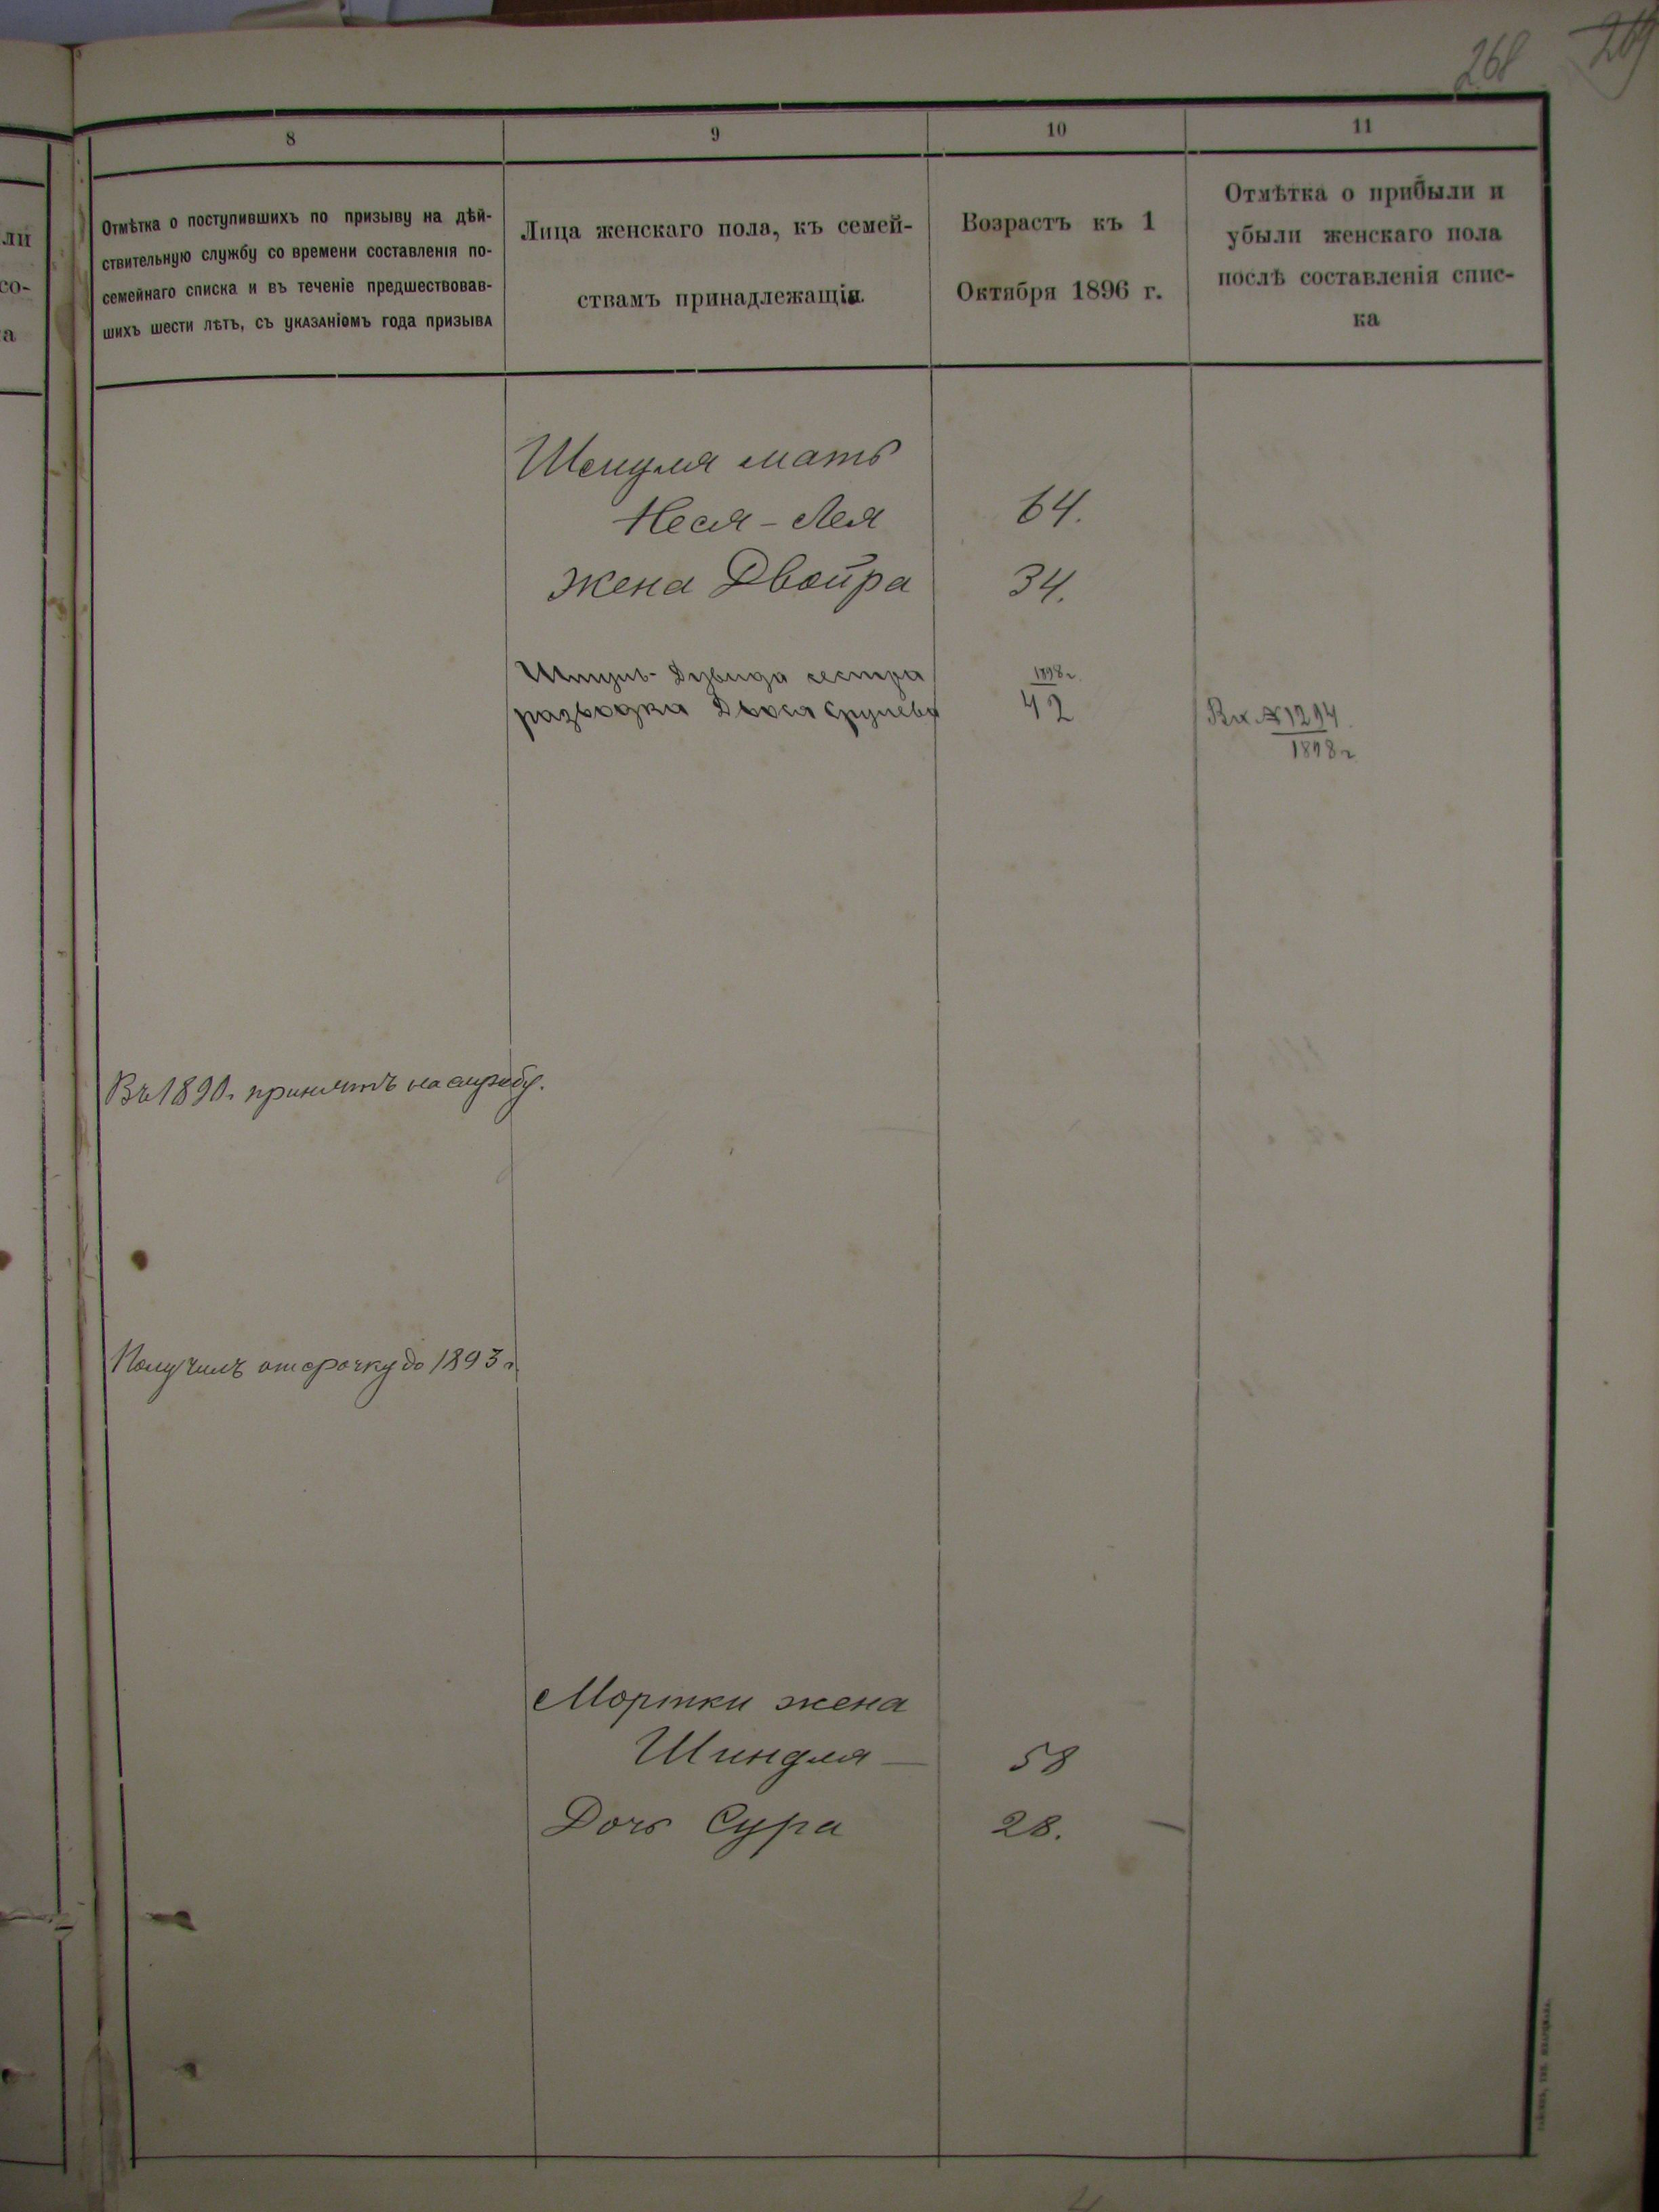 268
269
8
9
10
11
Отмѣтка о поступившихъ по призыву на дѣй-
ствительную службу со времени составленія по-
семейнаго списка и въ теченіе предшествовав-
шихъ шести лѣтъ, съ указаніемъ года призыва
Лица женскаго пола, къ семей-
ствамъ принадлежащія.
Возрастъ къ 1
Октября 1896 г.
Отмѣтка о прибыли и
убыли женскаго пола
послѣ составленія спис-
ка
ли
со-
а
мать
Неся-Лея 64.
жена Двойра 34.
сестра 1898 г.
разводка Двося 42
Вх. № 1294
1898 г
Въ 1890 г. принятъ на службу.
Получилъ отсрочку до 1893 г.
Мортки жена
Шиндля — 58
Дочь Сура 28.